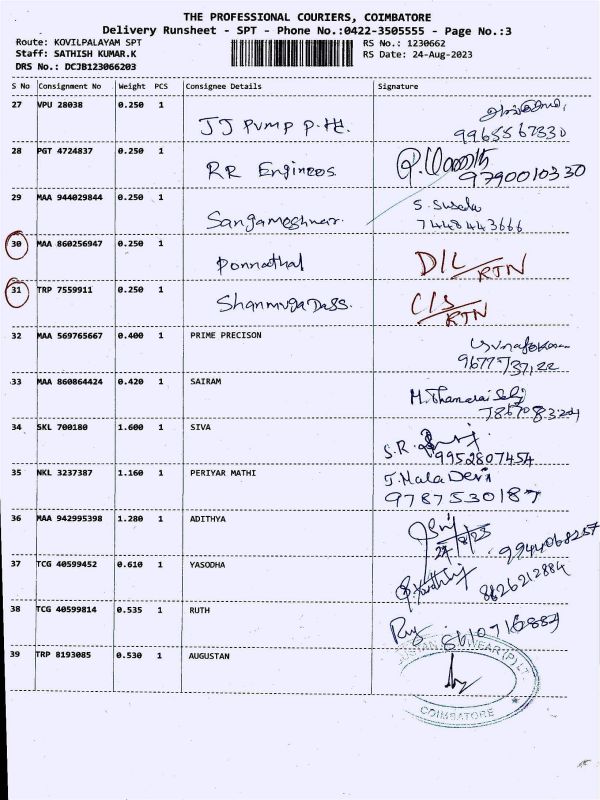 THE PROFESSIONAL COURIERS, COIMBATORE
Delivery Runsheet - SPT - Phone No.:0422-3505555 - Page No.:3
Route: KOVILPALAYAM SPT RS No.: 1230662
Staff: SATHISH KUMAR.K RS Date: 24-Aug-2023
DRS No.: DCJB123066203
S No Consignment No Weight PCS Consignee Details Signature
27 VPU 28038 0.250 1 JJ Pump P. Ltd.
9965567330
28 PGT 4724837 0.250 1 RR Engineos
9790010330
29 MAA 944029844 0.250 1 Sangameshwar. S. Suseela
7448443666
30 MAA 860256947 0.250 1 Ponnathal D/L RTN
31 TRP 7559911 0.250 1 Shanmuga Dass. C/S RTN
32 MAA 569765667 0.400 1 PRIME PRECISON
9677737122
33 MAA 860864424 0.420 1 SAIRAM M. Thamarai Selvi
34 SKL 700180 1.600 1 SIVA S.R.
9952807454
35 NKL 3237387 1.160 1 PERIYAR MATHI J. Mala Devi
9787530187
36 MAA 942995398 1.280 1 ADITHYA
24/8/23 9944068257
37 TCG 40599452 0.610 1 YASODHA
8826212884
38 TCG 40599814 0.535 1 RUTH
39 TRP 8193085 0.530 1 AUGUSTAN
COIMBATORE